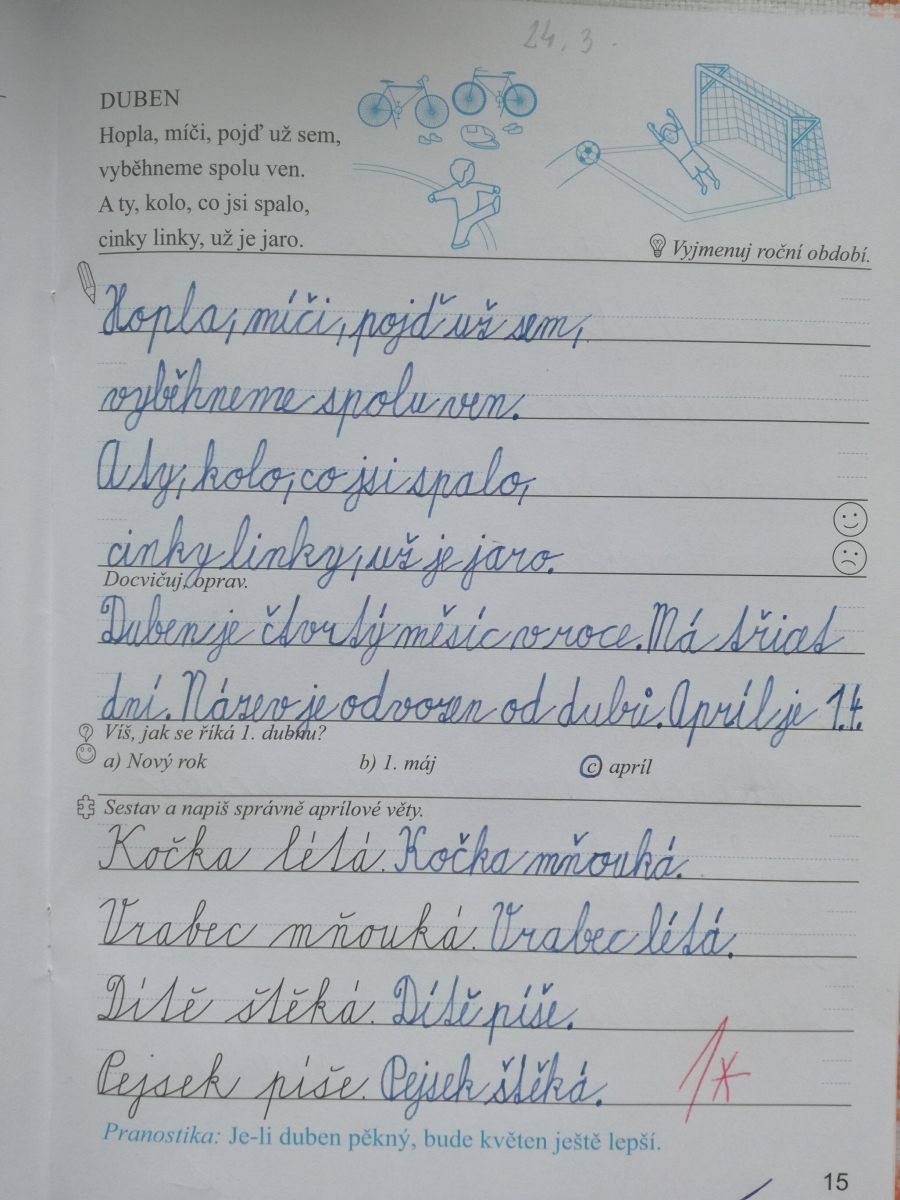 24. 3.
DUBEN
Hopla, míči, pojď už sem,
vyběhneme spolu ven.
A ty, kolo, co jsi spalo,
cinky linky, už je jaro.
Vyjmenuj roční období.
Hopla, míči, pojď už sem,
vyběhneme spolu ven.
A ty, kolo, co jsi spalo,
cinky linky, už je jaro.
Docvičuj, oprav.
Duben je čtvrtý měsíc v roce. Má třicet
dní. Název je odvozen od dubů. Apríl je 1.4.
Víš, jak se říká 1. dubnu?
a) Nový rok b) 1. máj c) apríl
Sestav a napiš správně aprílové věty.
Kočka létá. Kočka mňouká.
Vrabec mňouká. Vrabec létá.
Dítě štěká. Dítě píše.
Pejsek píše. Pejsek štěká.
1*
Pranostika: Je-li duben pěkný, bude květen ještě lepší.
15